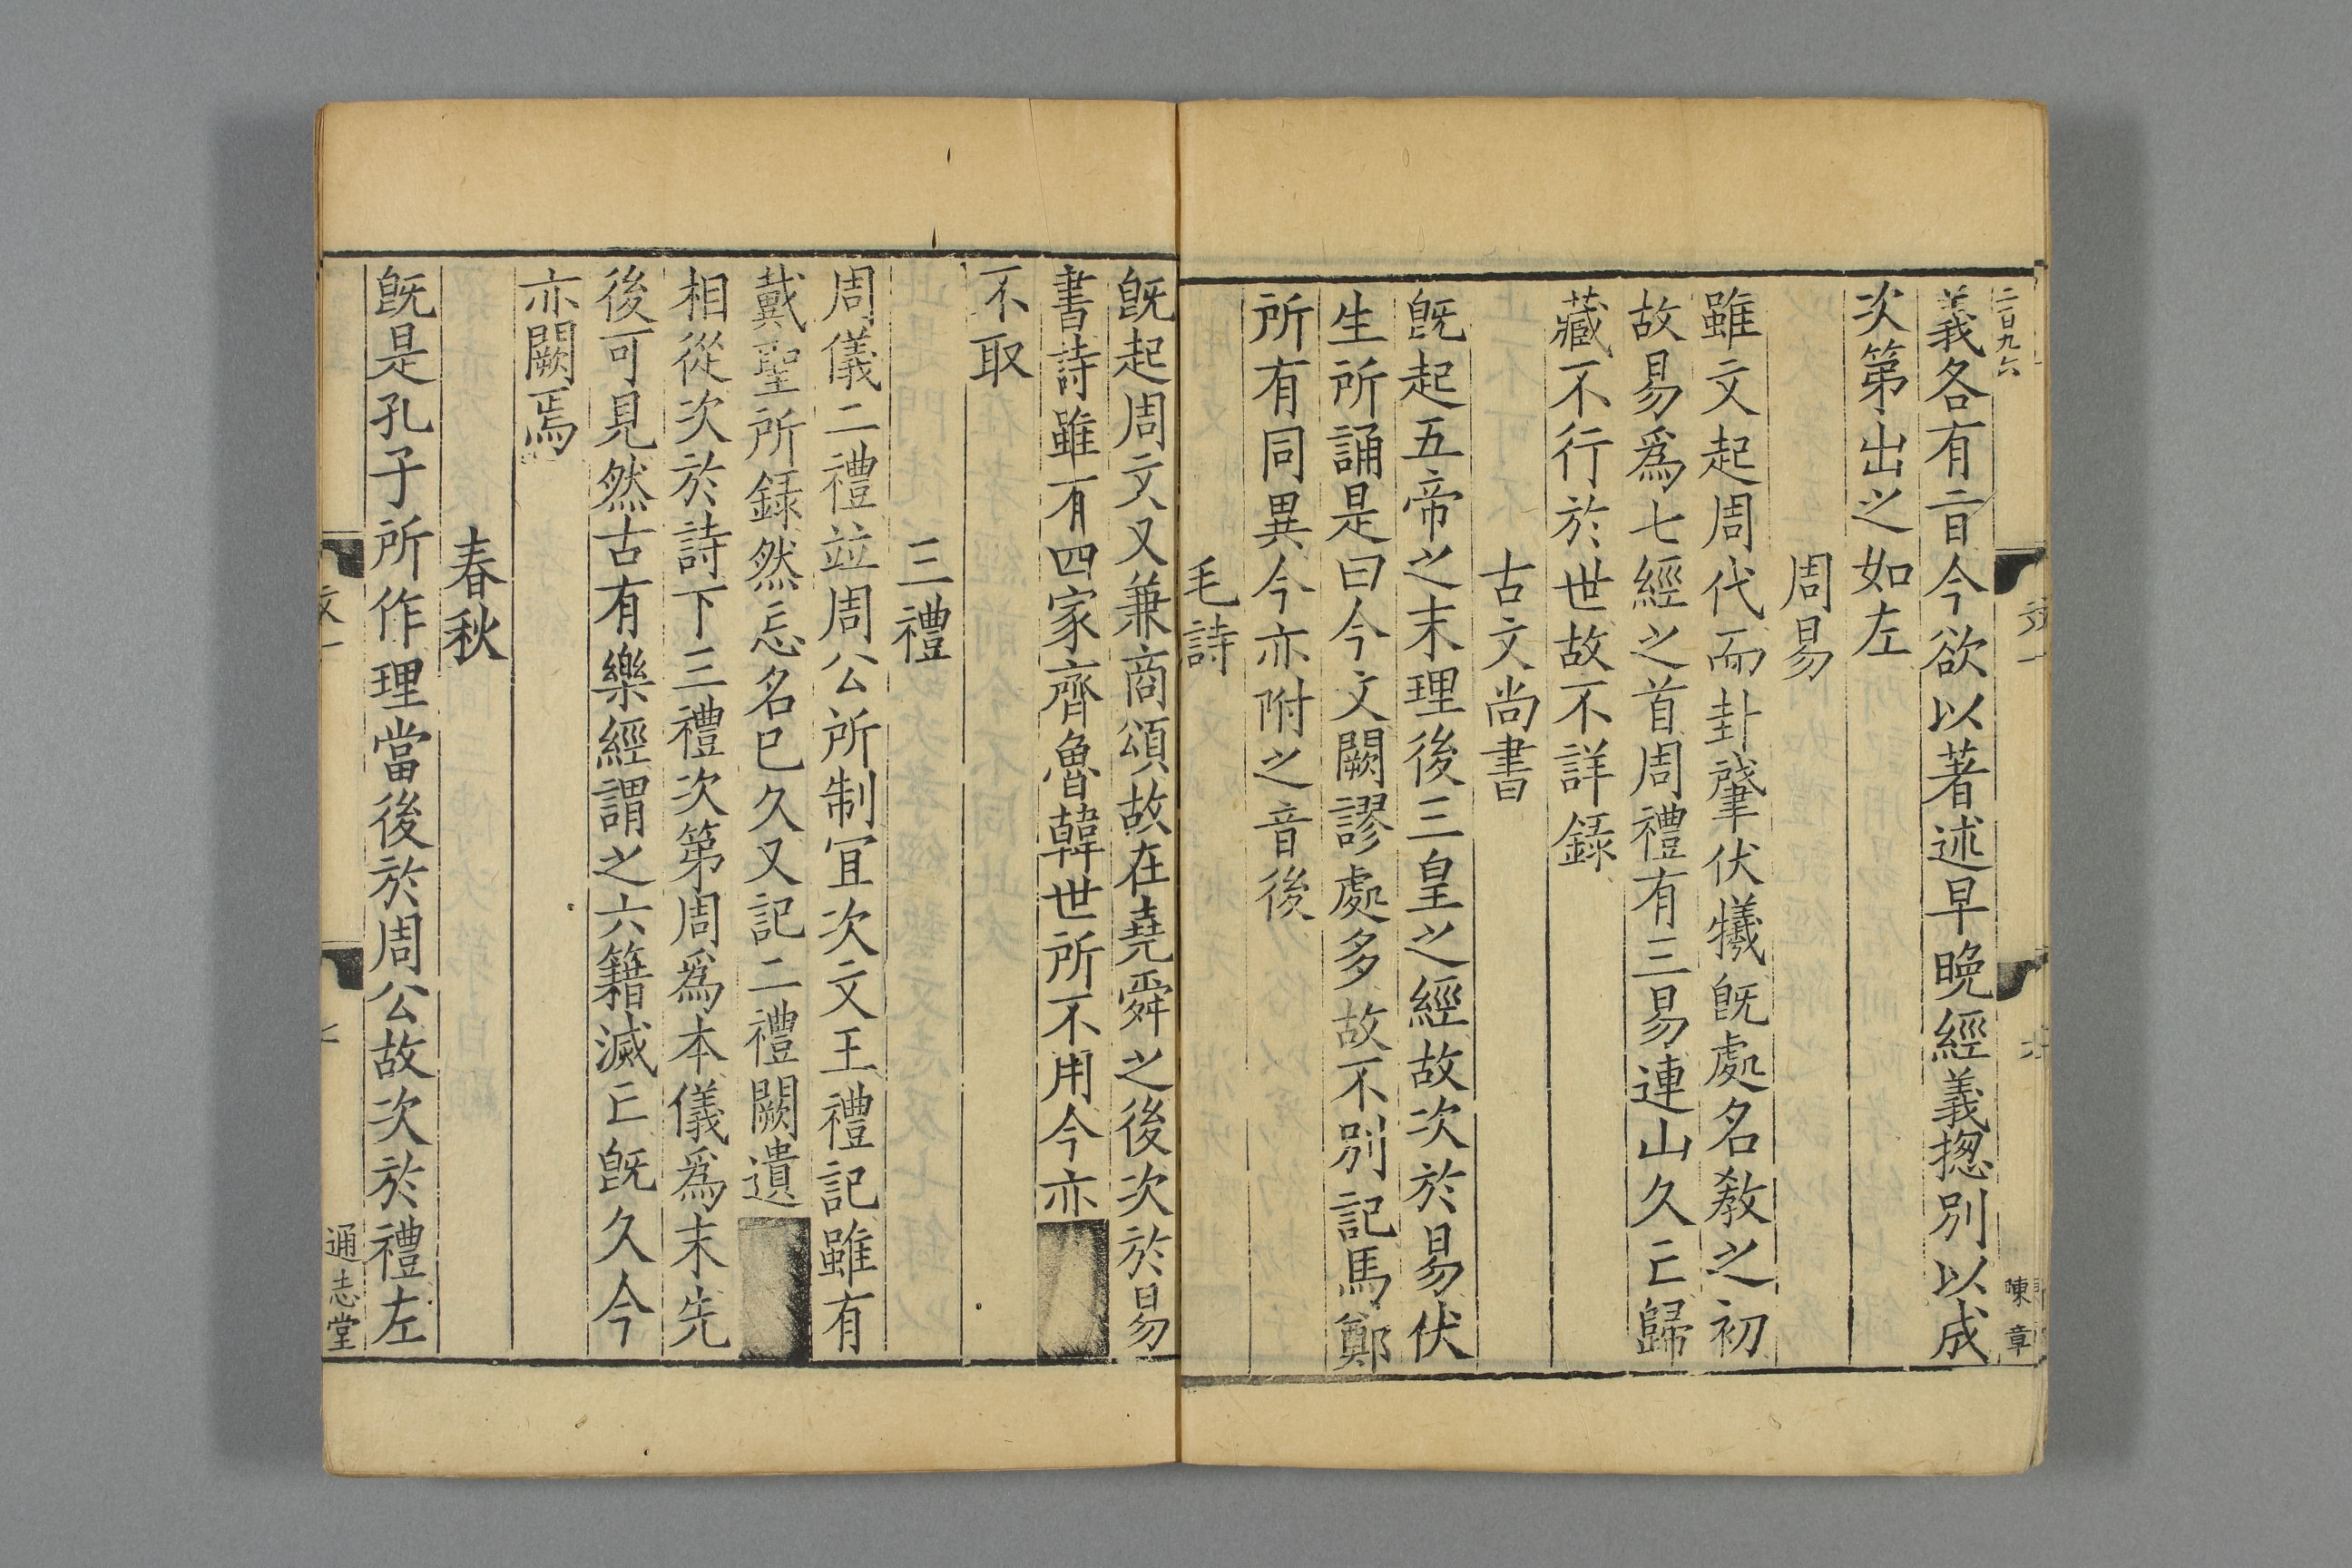 二百九六
陳章
義各有旨今欲以著述早晚經義揔別以成
次第出之如左
周易
雖文起周代而卦肇伏犧旣處名敎之初
故易爲七經之首周禮有三易連山久亡歸
藏不行於世故不詳錄
古文尚書
旣起五帝之末理後三皇之經故次於易伏
生所誦是曰今文闕謬處多故不別記馬鄭
所有同異今亦附之音後
毛詩
旣起周文又兼商頌故在堯舜之後次於易
書詩雖有四家齊魯韓世所不用今亦
不取
三禮
周儀二禮並周公所制宜次文王禮記雖有
戴聖所錄然忘名巳久又記二禮闕遺
相從次於詩下三禮次第周爲本儀爲末先
後可見然古有樂經謂之六籍滅亡旣久今
亦闕焉
春秋
旣是孔子所作理當後於周公故次於禮左
通志堂